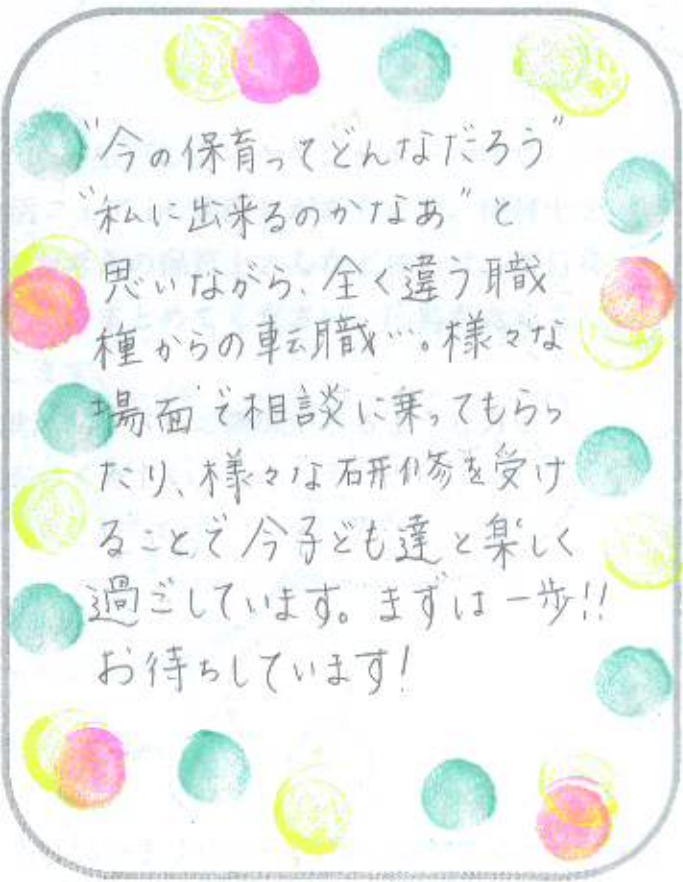 "今の保育ってどんなだろう"
"私に出来るのかなあ"と
思いながら、全く違う職
種からの転職…。様々な
場面で相談に乗ってもらっ
たり、様々な研修を受け
ることで今子ども達と楽しく
過ごしています。まずは一歩!!
お待ちしています!